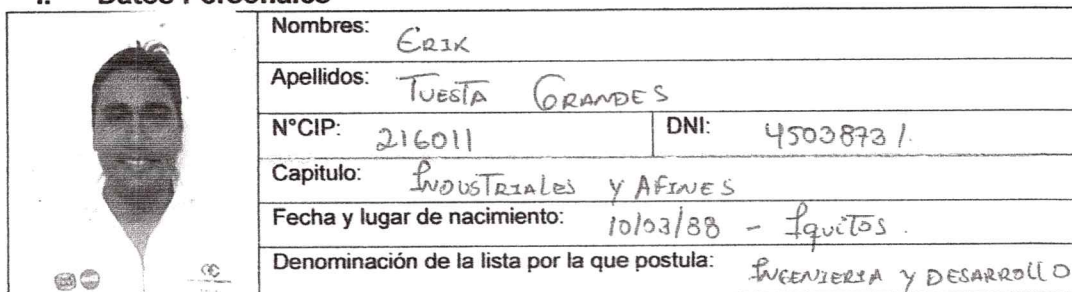 I. Datos Personales
Nombres: ERIK
Apellidos: TUESTA GRANDES
N°CIP: 216011 DNI: 45038731.
Capitulo: INDUSTRIALES Y AFINES
Fecha y lugar de nacimiento: 10/03/88 - Iquitos.
Denominación de la lista por la que postula: INGENIERIA Y DESARROLLO